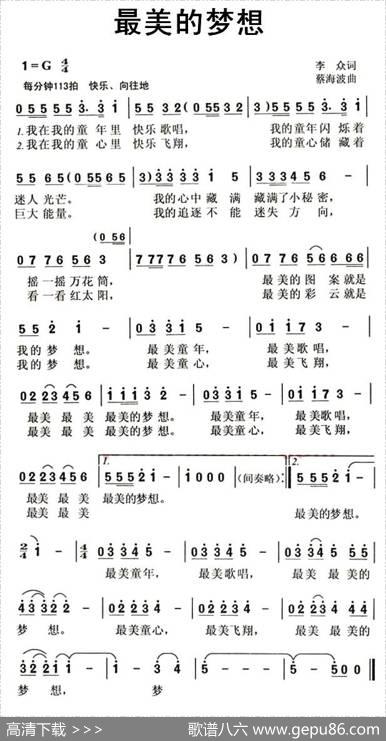 最美的梦想
1=G 4/4
李 众词
每分钟113拍 快乐、向往地
蔡海波曲
0 5 5 5 5 3. 3 1 5 5 3 2 (0 5 5 5 3 2) 3 5 5 5 5 3. 3 1
1.我在我的 童 年 里 快乐 歌唱， 我的 童年 闪 烁着
2.我在我的 童 心 里 快乐 飞翔， 我的 童心 储 藏着
5 5 6 5 (5 5 6 5) 3 3 3 3 5 1 3 3 3 4 5 6 -
迷人 光芒。 我的 心中 藏 满 藏满了小秘 密，
巨大 能量。 我的 追逐 不 能 迷失 方 向，
(0 5 6
0 7 7 6 5 6 3 7 7 7 7 6 5 6 3) 0 7 7 6 5 6 6 6 6
摇 一摇 万花 筒， 最 美的 图 案就是
看 一看 红太 阳， 最 美的 彩 云就是
5 5 2 1 - 0 3 3 3 1 5 - 0 1 0 1 7 3 -
我的 梦 想。 最 美童 年， 最 美歌 唱，
我的 梦 想。 最 美童 心， 最 美飞 翔，
0 2 2 3 4 5 6 1 1 1 1 3 2 0 3 3 3 1 5 - 0 1 0 1 7 3 -
最美 最 美 最美的梦 想。 最美童心， 最 美歌唱，
最美 最 美 最美的梦 想。 最美童心， 最 美飞翔，
1. 2.
0 2 2 3 4 5 6 5 5 5 2 1 - 1 0 0 0 (间奏略) :‖ 5 5 5 2 1 -
最美 最 美 最美的梦 想。
最美 最 美 最美的梦想。
2/4 1 - 4/4 0 3 3 4 5 - 0 3 3 4 5 - 0 3 3 4 5 5 5
最美童年， 最美歌唱， 最美 最 美的
4 3 3 2 2 - 0 2 2 3 4 - 0 2 2 3 4 - 0 2 2 3 4 4 4
梦 想。 最美童心， 最美飞翔， 最美 最 美的
3 2 2 1 1 - 1 - - - 5 - - - 5 - 5 0 0 ‖
梦 想， 梦
高清下载 >>>
歌谱八六 www.gepu86.com